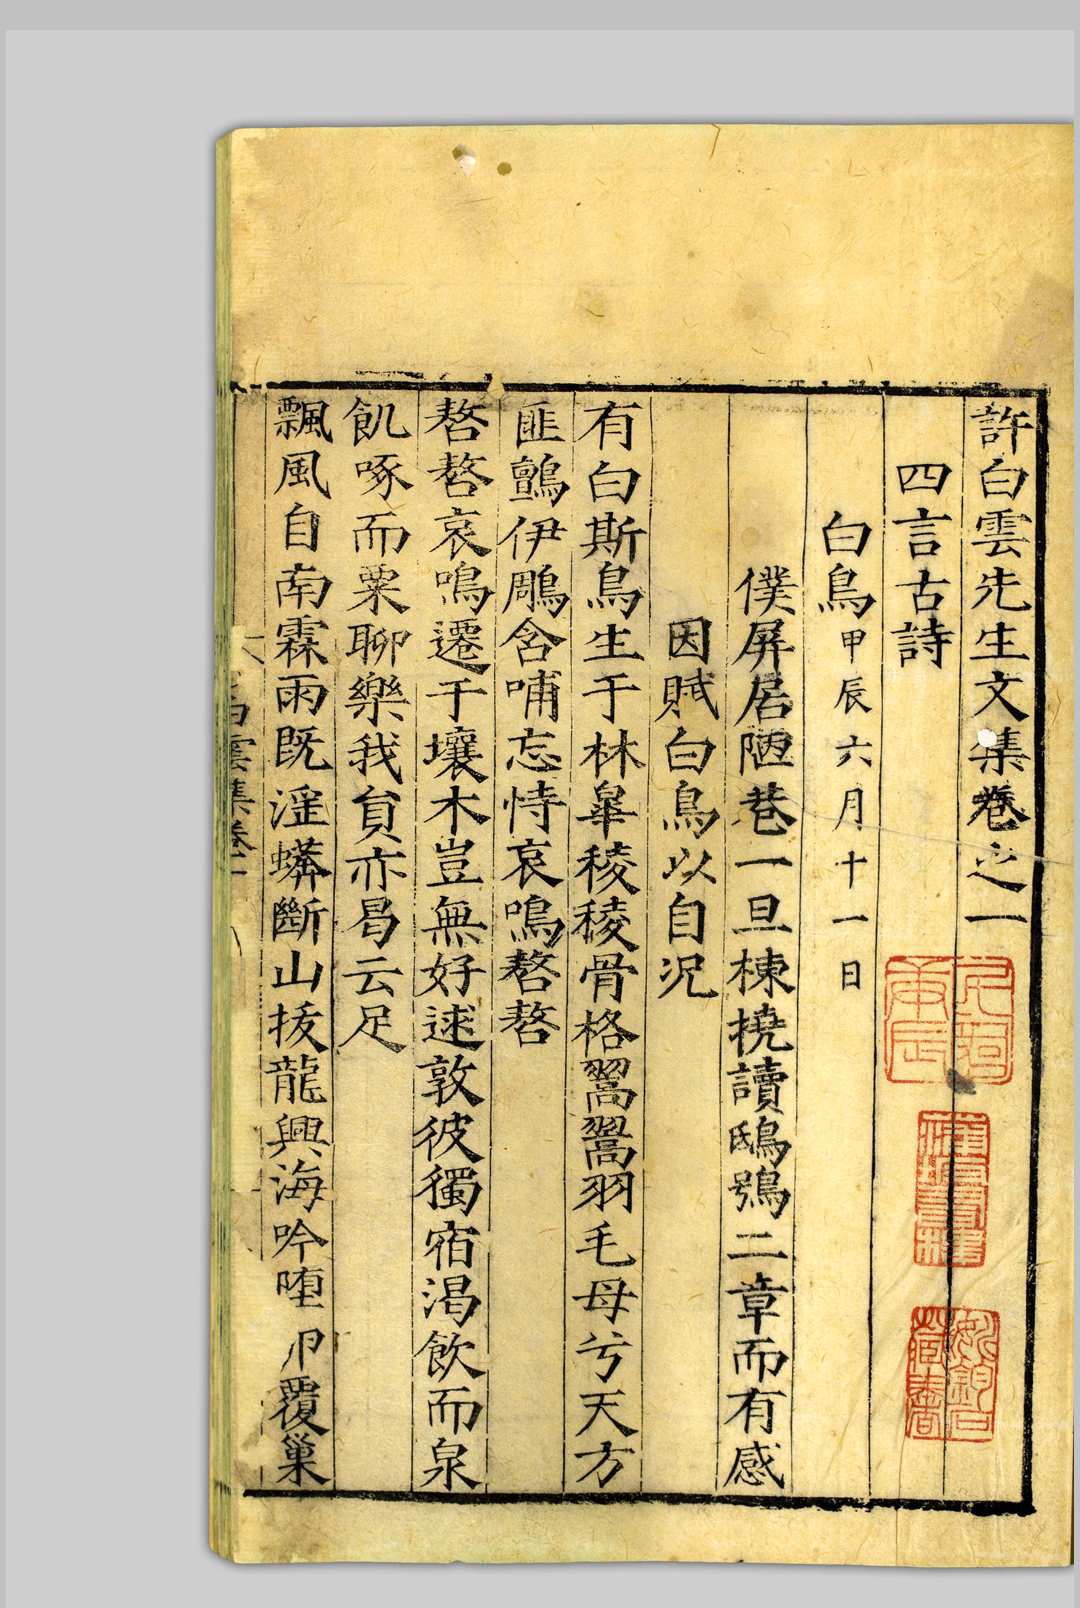 許白雲先生文集卷之一
四言古詩
白鳥甲辰六月十一日
僕屏居陋巷一旦棟撓讀鴟鴞二章而有感
因賦白鳥以自況
有白斯鳥生于林皐稜稜骨格翯翯羽毛母兮天方
匪鸇伊鵰含哺忘恃哀鳴嗸嗸
嗸嗸哀鳴遷于壤木豈無好逑敦彼獨宿渴飲而泉
飢啄而粟聊樂我貟亦曷云足
飄風自南霖雨既滛蠎斷山拔龍興海吟墮卵覆巢
白雲集卷一